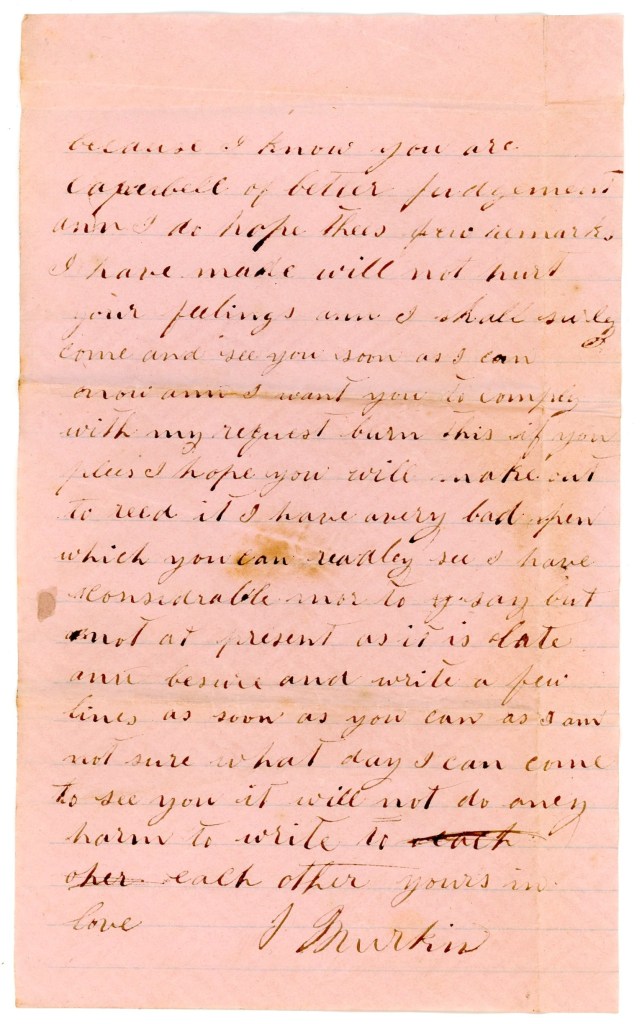 because I know you are
caperbell of better judgement
ann I do hope thees few remarks
I have made will not hurt
your feelings ann I shall surley
come and see you soon as I can
now ann I want you to comply
with my request burn this if you
pleis I hope you will make out
to reed it I have avery bad pen
which you can readley see I have
considrable mor to say but
not at present as it is late
ann besure and write a few
lines as soon as you can as I am
not sure what day I can come
to see you it will not do aney
harm to write to each
oher each other yours in
love J